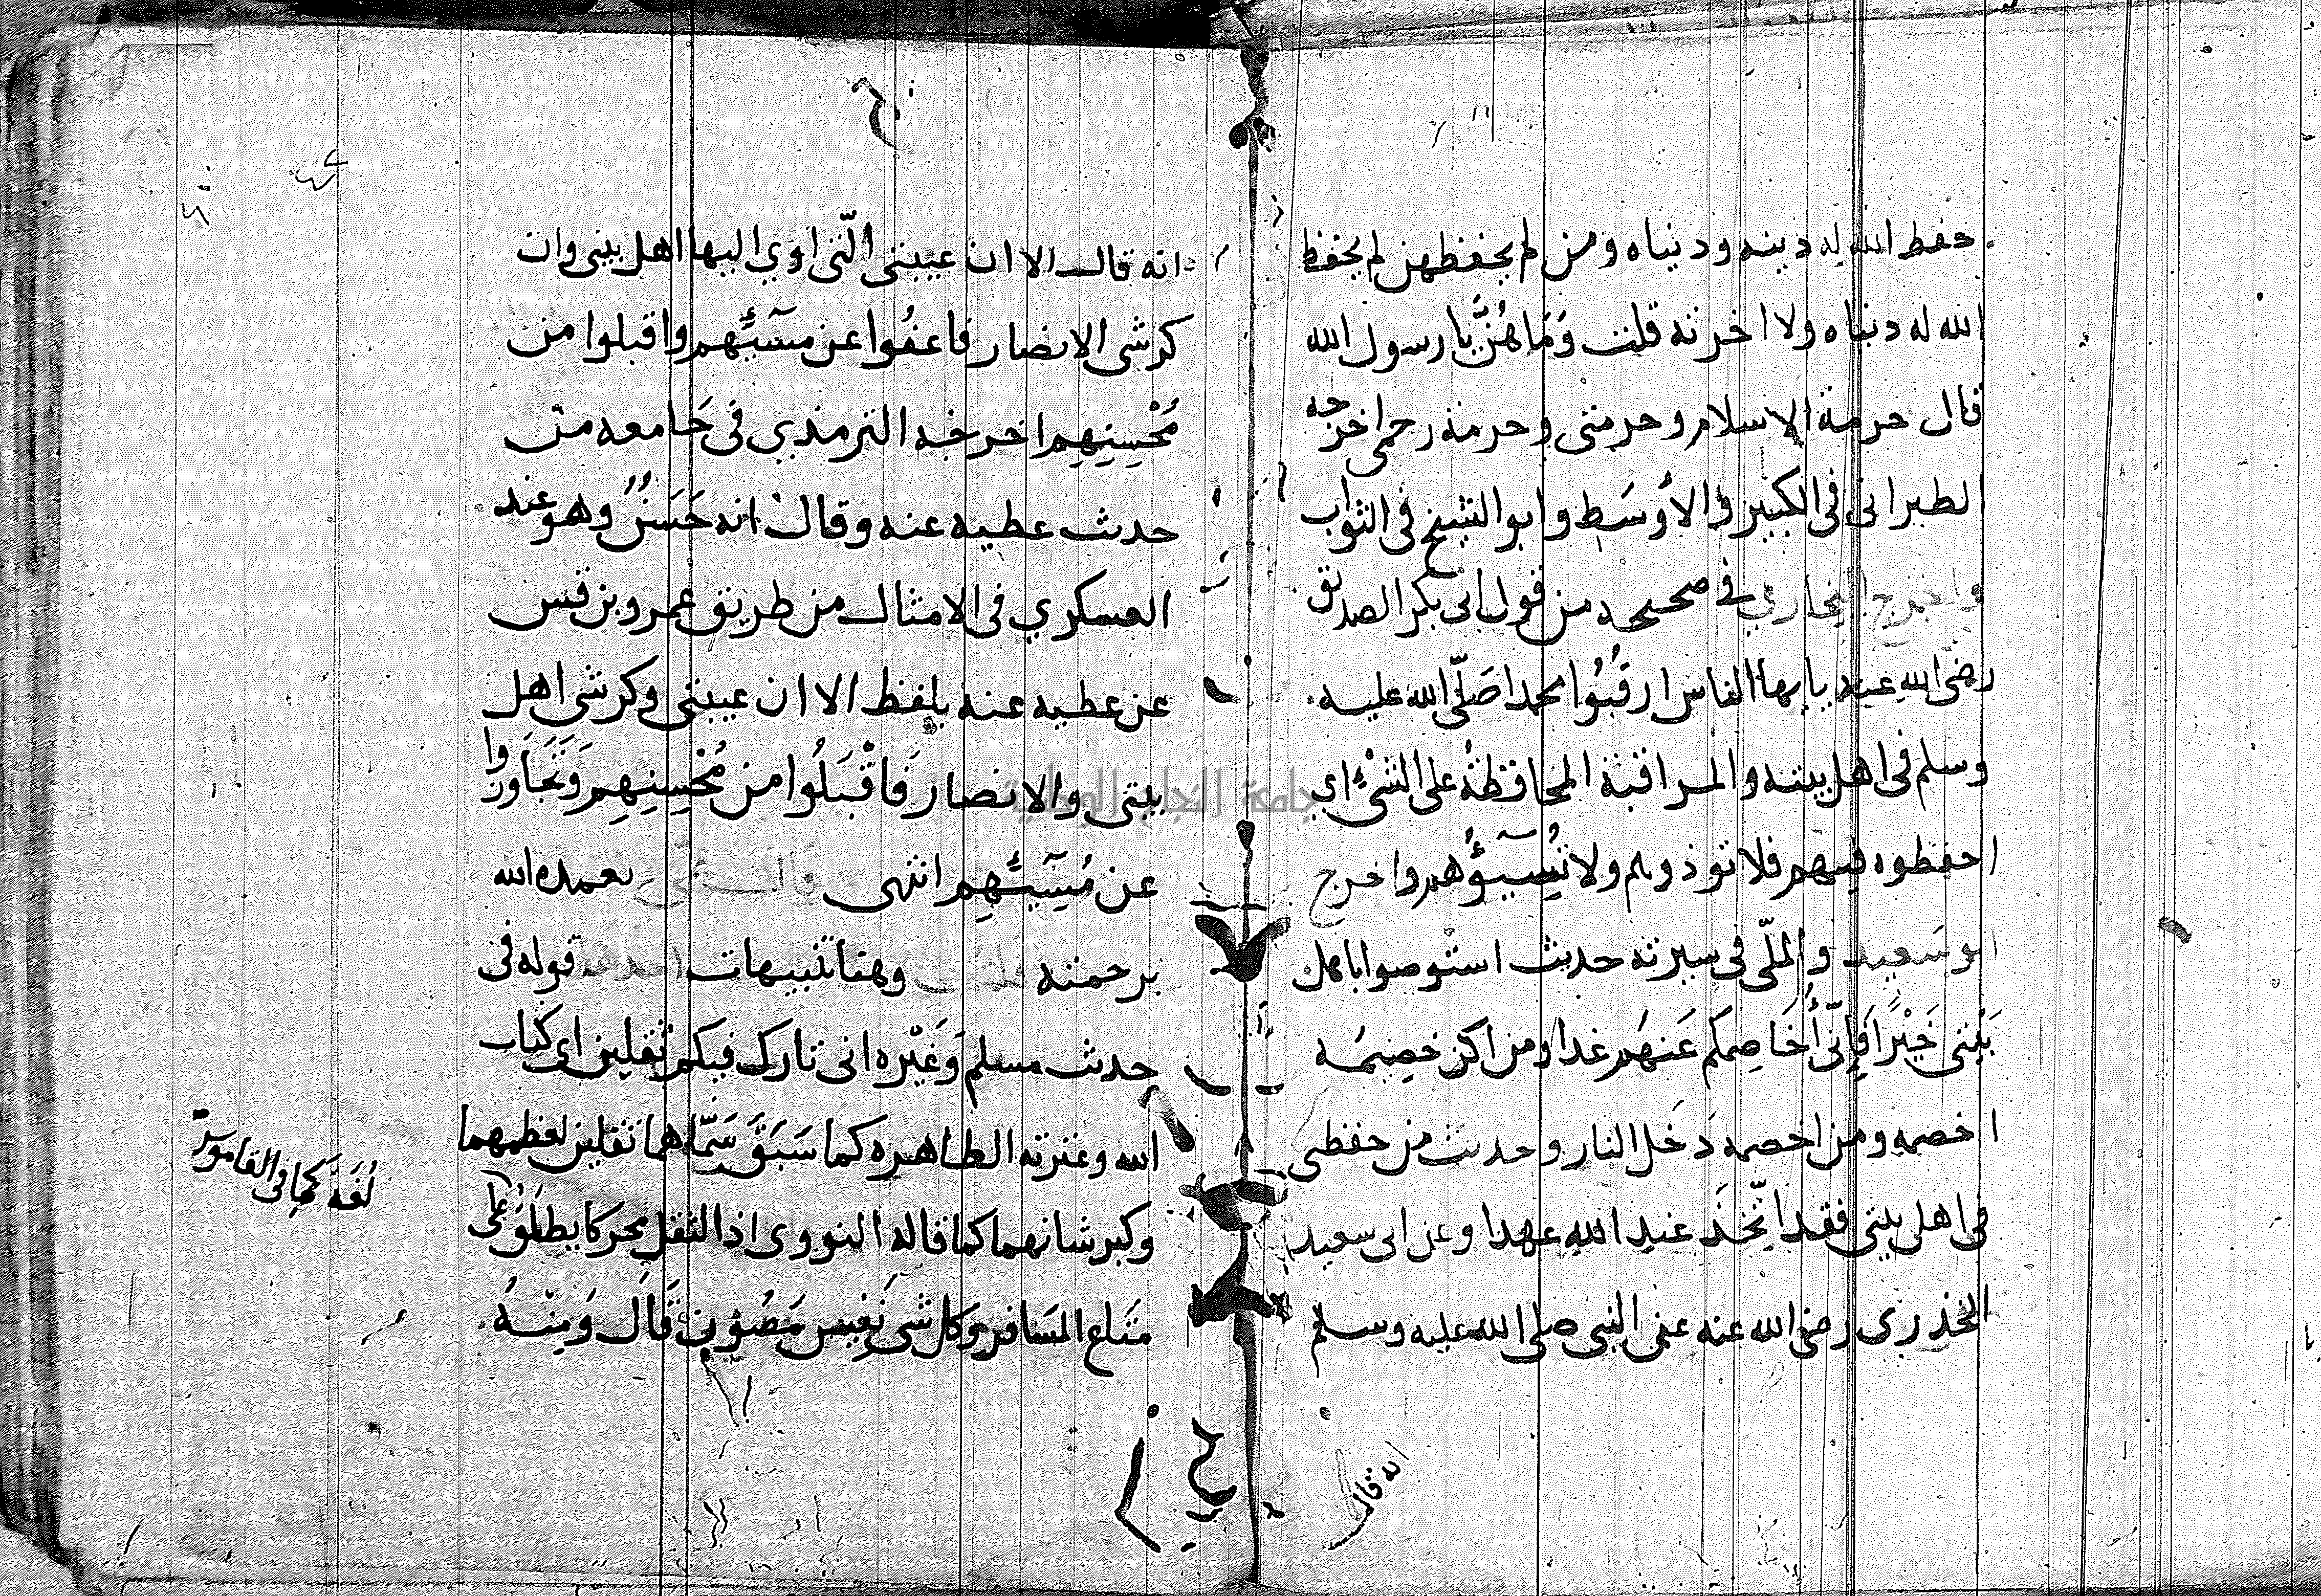 حفظ الله له دينه ودنياه ومن لم يحفظهن لم يحفظ
الله له دنياه ولا اخرته قلت وَمَا هُنَّ يا رسول الله
قال حرمة الاسلام وحرمتى وحرمة رحمى اخرجه
الطبرانى فى الكبير والأَوسَط وابو الشيخ فى الثواب
واخرج البخاري في صحيحه من قول ابى بكر الصديق
رضى الله عنه يايها الناس ارقُبُوا محمدا صَلّى الله عليه
وسلم فى اهل بيته والمراقبة المحافظةُ على الشىْءِ اى
احفظوه فيهم فلا توذوهم ولا تُسِيَئُوهم واخرج
ابو سَعيد والملّى فى سيرته حديث استوصوا باهل
بَيْتى خَيْرًا فَإِنّى أُخَاصِمكم عَنهَم غدا ومن اكن خصيمَه
اخصمه ومن اخصمه دَخَل النار وحديث من حفظنى
فى اهل بيتى فقد اتَّخَذَ عند الله عهدا وعن ابى سعيد
الخدرى رضى الله عنه عن النبى صلى الله عليه وسلم
انه قال
انه قال الا ان عيبتى الّتى اوي اليها اهل بيتى وان
كرشى الانصار فاعفُوا عن مسَيِّئهم واقبلوا من
مُحْسِنِهِم اخرجه الترمذي فى جَامعه من
حديث عطيه عنه وقال انه حَسَنٌ وهو عند
العسكري فى الامثال من طريق عمرو بن قيس
عن عطيه عنه بلفظ الا ان عيبتى وكرشى اهل
بيتى والانصار فَاقْبَلُوا من مُحْسِنِهِم وَتَجَاوَزوا
عن مُسِيَئِهِم انتهى قال تغمده الله
برحمته قلت وهنا تنبيهات احدها قوله فى
حديث مسلم وَغَيْره انى تارك فيكم ثقلين اى كتاب
الله وعترته الطاهره كما سَبَقَ سَمّاهما ثقلين لعظمهما
وكبر شانهما كما قاله النووى اذ الثقل محركا يطلَقُ على
متاع المسَافر وكل شى نَفيس مَصُوْن قَالَ وَمِنْهُ
لُغَةً كما فى القاموس